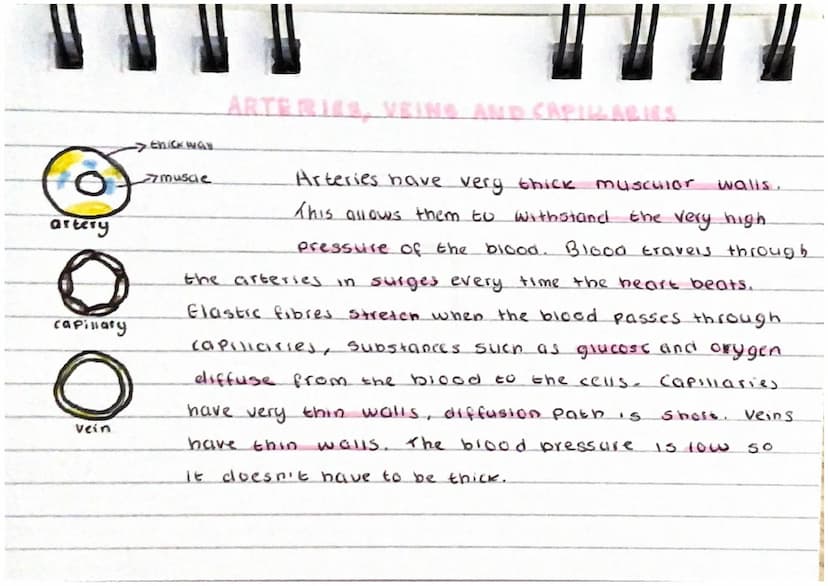 ARTERIES, VEINS AND CAPILLARIES
thick wall
muscle
artery
capillary
vein
Arteries have very thick muscular walls.
This allows them to withstand the very high
pressure of the blood. Blood travels through
the arteries in surges every time the heart beats.
Elastic fibres stretch when the blood passes through
capillaries, substances such as glucose and oxygen
diffuse from the blood to the cells. Capillaries
have very thin walls, diffusion path is short. Veins
have thin walls. The blood pressure is low so
it doesn't have to be thick.